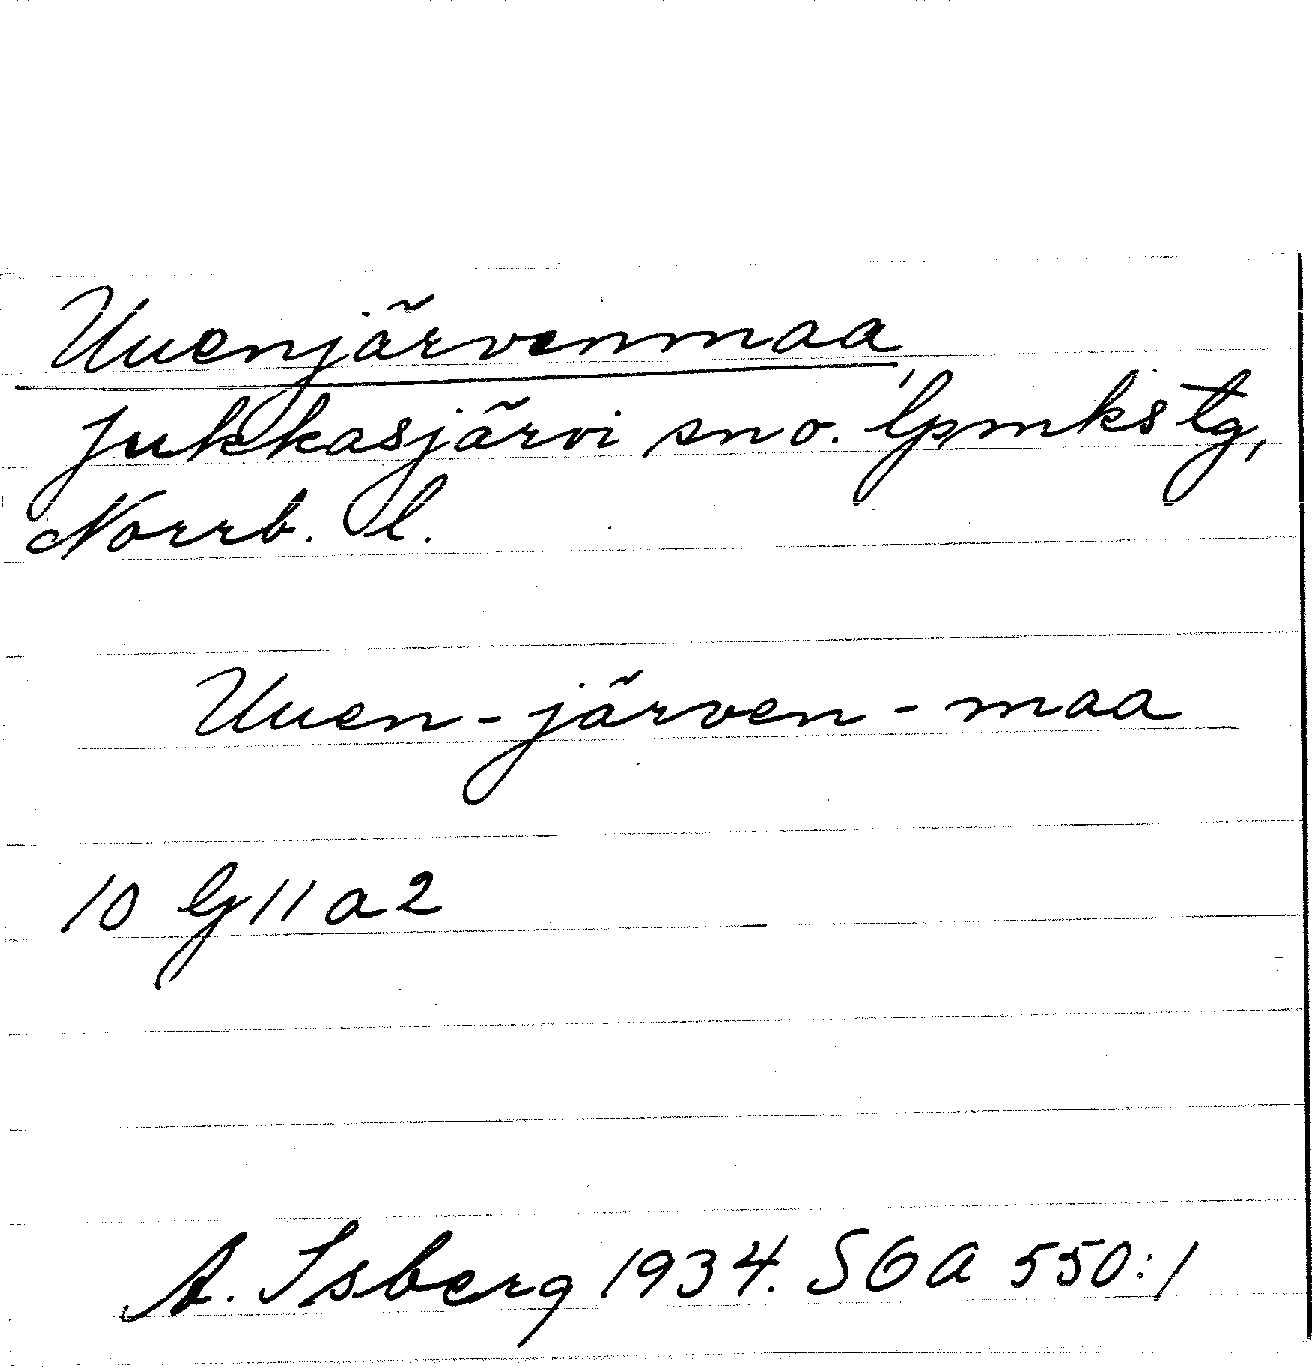 Uuenjärvenmaa,
Jukkasjärvi sno. lpmks tg,
Norrb. l.
Uuen-järven-maa
10 G 11 a 2
A. Isberg 1934. SOA 550:1